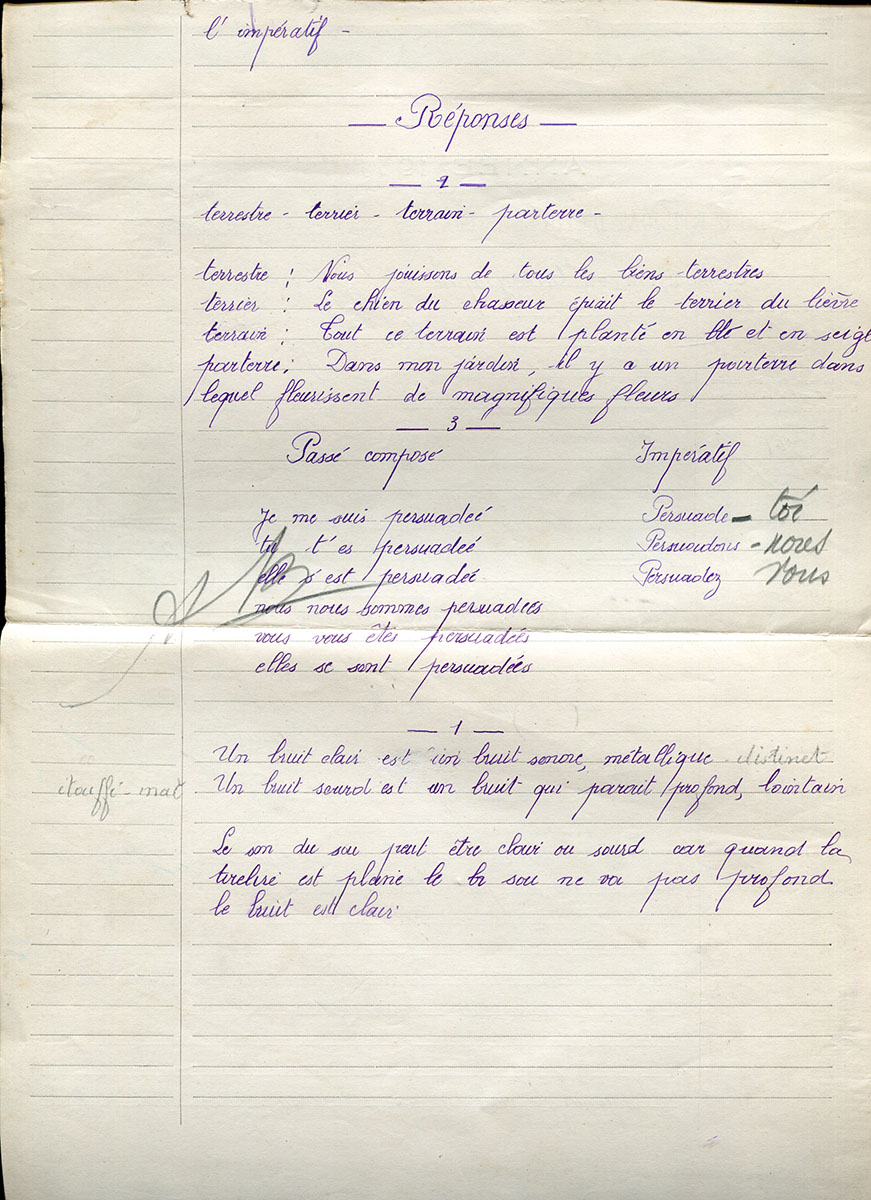 l'impératif -
— Réponses —
— 2 —
terrestre - terrier - terrain - parterre -
terrestre : Nous jouissons de tous les biens terrestres
terrier : Le chien du chasseur épiait le terrier du lièvre
terrain : Tout ce terrain est planté en blé et en seigle
parterre : Dans mon jardin, il y a un parterre dans
lequel fleurissent de magnifiques fleurs
— 3 —
Passé composé Impératif
Je me suis persuadée Persuade - toi
tu t'es persuadée Persuadons - nous
elle s'est persuadée Persuadez vous
nous nous sommes persuadées
vous vous êtes persuadées
elles se sont persuadées
— 1 —
Un bruit clair est un bruit sonore, métallique distinct
étouffé - mat Un bruit sourd est un bruit qui parait profond, lointain
Le son du sou peut être clair ou sourd car quand la
tirelire est pleine le br sou ne va pas profond
le bruit est clair